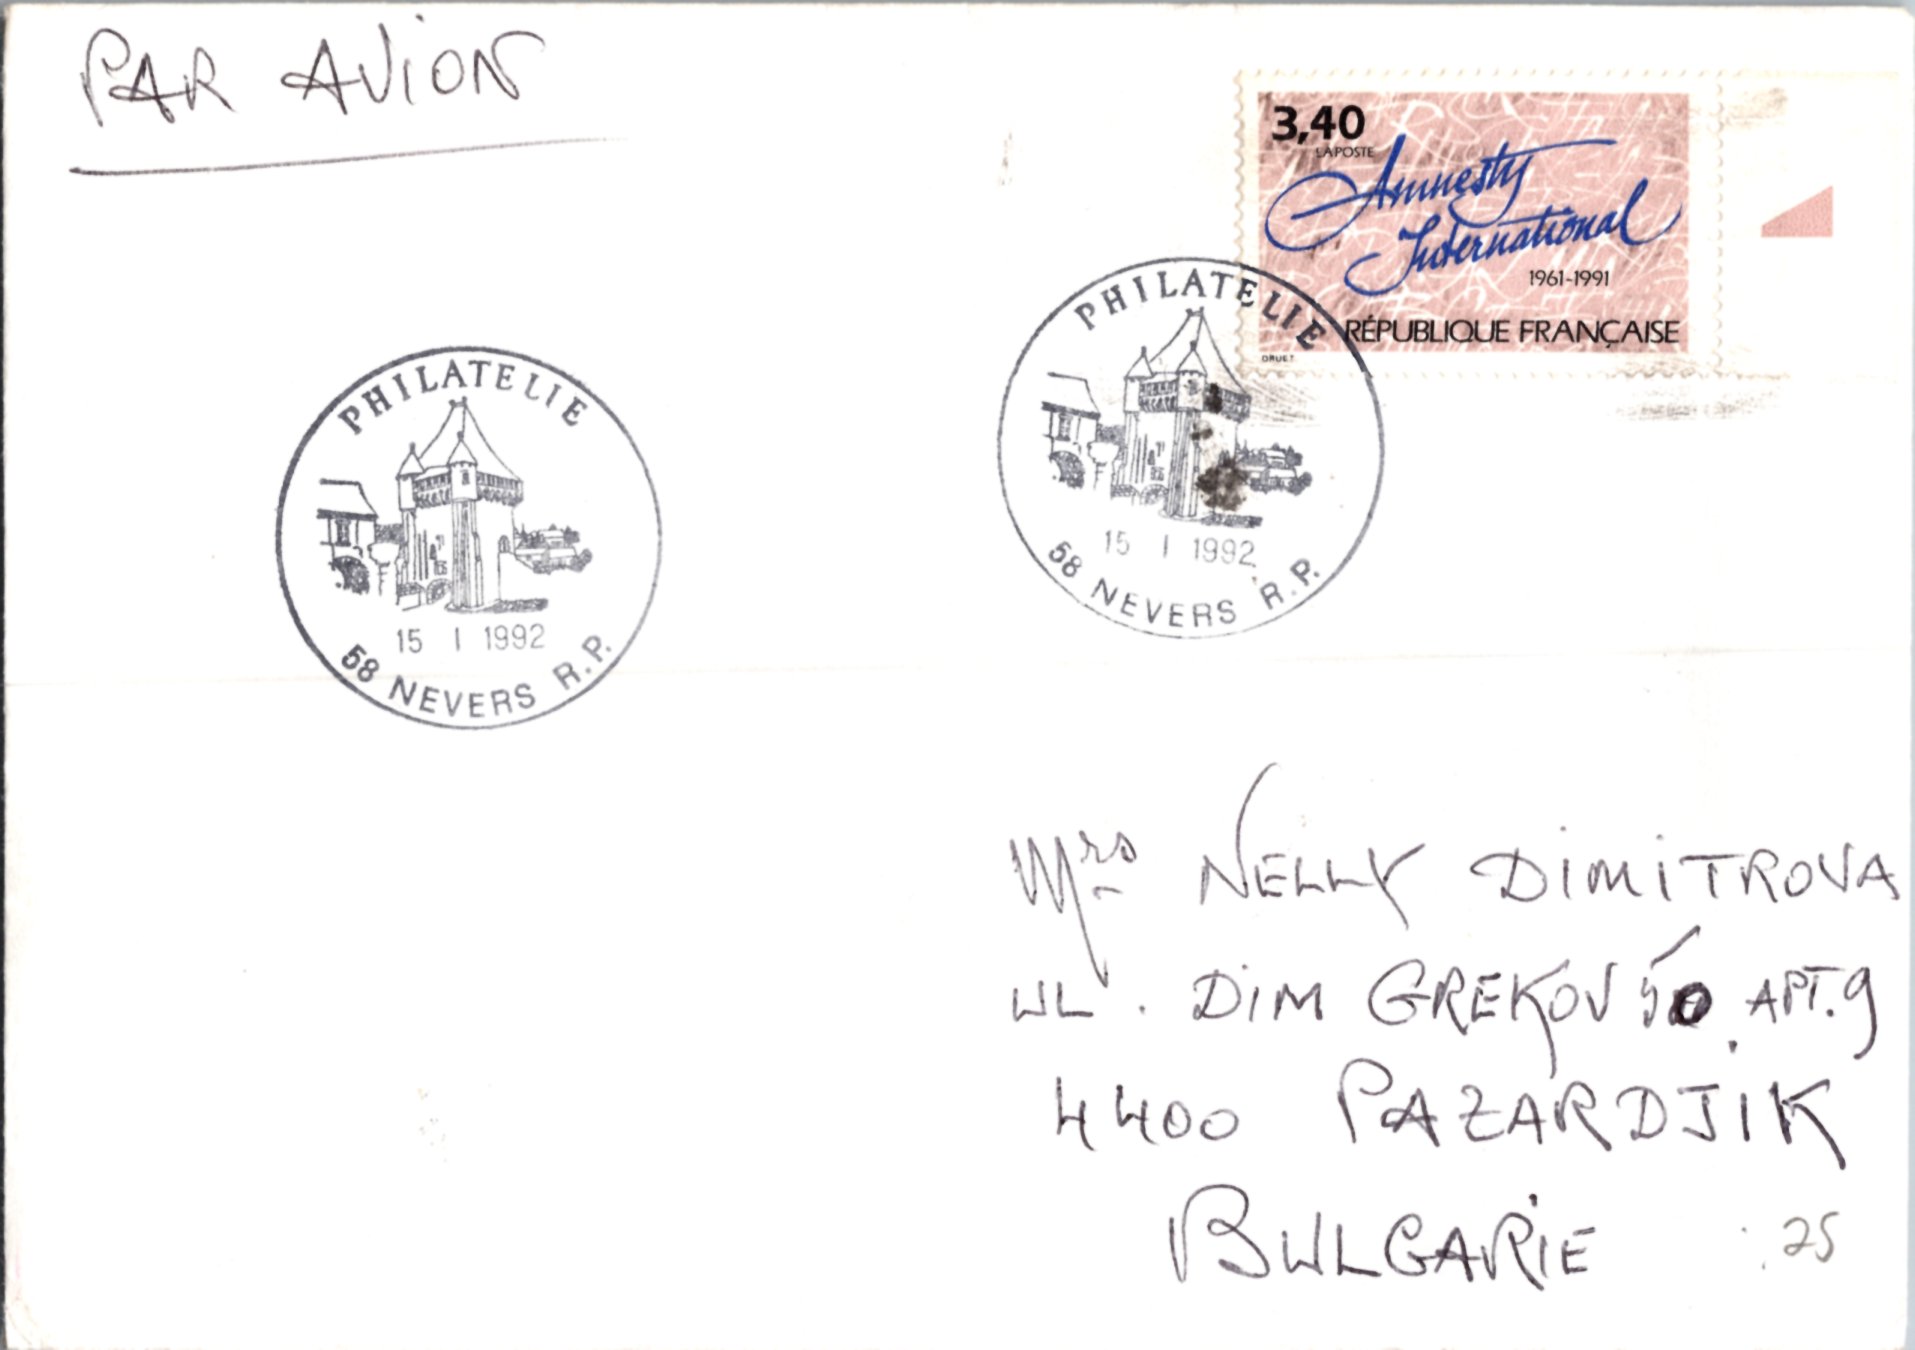 PAR AVION
3,40
LA POSTE
Amnesty
International
1961-1991
RÉPUBLIQUE FRANÇAISE
DRUET
PHILATELIE
15 I 1992
58 NEVERS R.P.
PHILATELIE
15 I 1992
58 NEVERS R.P.
Mrs NELLY DIMITROVA
UL. DIM GREKOV APT.9
4400 PAZARDJIK
BULGARIE
25